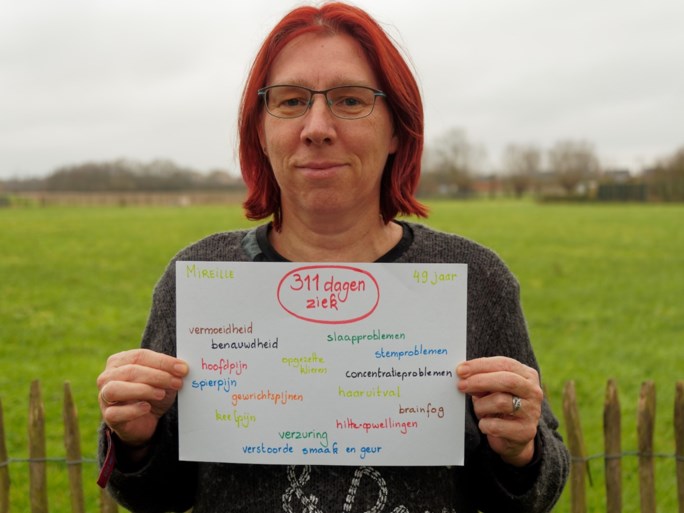 Mireille
311 dagen
ziek
49 jaar
vermoeidheid
slaapproblemen
benauwdheid
stemproblemen
hoofdpijn
opgezette
klieren
concentratieproblemen
spierpijn
gewrichtspijnen
haaruitval
brainfog
keelpijn
hitte-opwellingen
verzuring
verstoorde smaak en geur